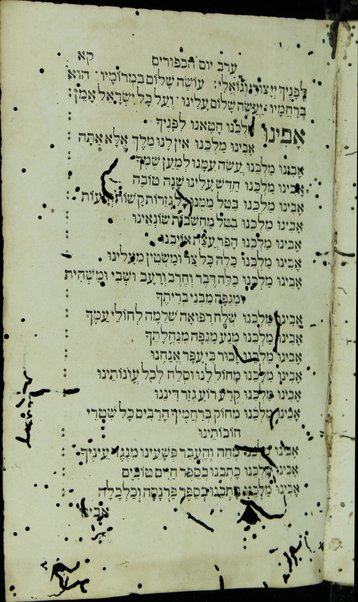 ערב יום הכפורים קא
לפניך יי צורי וגואלי: עושה שלום במרומיו הוא
ברחמיו יעשה שלום עלינו ועל כל ישראל אמן:
אבינו מלכנו חטאנו לפניך
אבינו מלכנו אין לנו מלך אלא אתה
אבינו מלכנו עשה עמנו למען שמך
אבינו מלכנו חדש עלינו שנה טובה
אבינו מלכנו בטל ממנו כל גזרות קשות ורעות
אבינו מלכנו בטל מחשבות שונאינו
אבינו מלכנו הפר עצת אויבנו
אבינו מלכנו כלה כל צר ומשטין מעלינו
אבינו מלכנו כלה דבר וחרב ורעב ושבי ומשחית
ומגפה מבני בריתך
אבינו מלכנו שלח רפואה שלמה לחולי עמך
אבינו מלכנו מנע מגפה מנחלתך
אבינו מלכנו זכור כי עפר אנחנו
אבינו מלכנו מחול לנו וסלח לכל עונותינו
אבינו מלכנו קרע רוע גזר דיננו
אבינו מלכנו מחוק ברחמיך הרבים כל שטרי
חובותינו
אבינו מלכנו מחה והעבר פשעינו מנגד עיניך
אבינו מלכנו כתבנו בספר חיים טובים
אבינו מלכנו כתבנו בספר פרנסה וכלכלה
אבינו